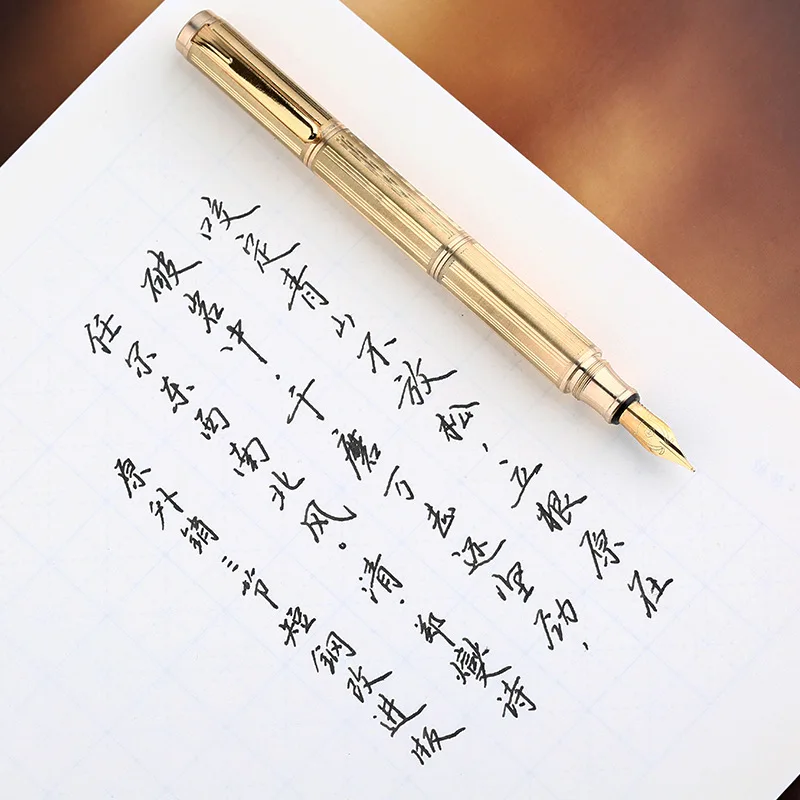 咬定青山不放松,立根原在
破岩中.千磨万击还坚劲,
任尔东西南北风。清.郑燮诗
原升销三节短钢改进版